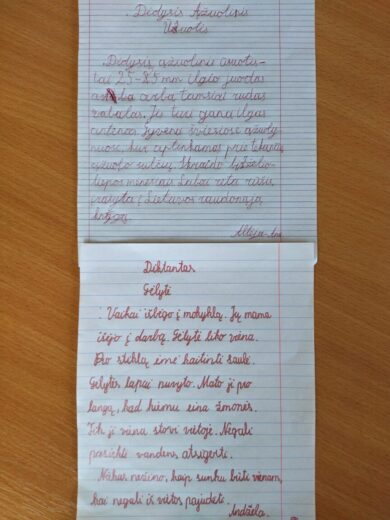 Didysis Ąžuolinis
Ūsuotis
Didysis ąžuolinis ūsuotis-
tai 25-85 mm ilgio juodas
arba tamsiai rudas
vabalas. Jis turi gana ilgas
antenas. Gyvena šviesiose ąžuoly-
nuose, kur aptinkamas prie tekančių
ąžuolo sulčių. Skraido birželio-
liepos mėnesiais. Labai reta rūšis,
įrašyta į Lietuvos raudonąją
knygą.
Diktantas
Gėlytė
Vaikai išbėgo į mokyklą. Jų mama
išėjo į darbą. Gėlytė liko viena.
Pro stiklą ėmė kaitinti saulė.
Gėlytės lapai nuvyto. Mato ji pro
langą, kad kiemu eina žmonės.
Tik ji viena stovi vietoje. Negali
pasiekti vandens, atsigerti.
Niekas nežino, kaip sunku būti vienam,
kai negali iš vietos pajudėti.
Andžela